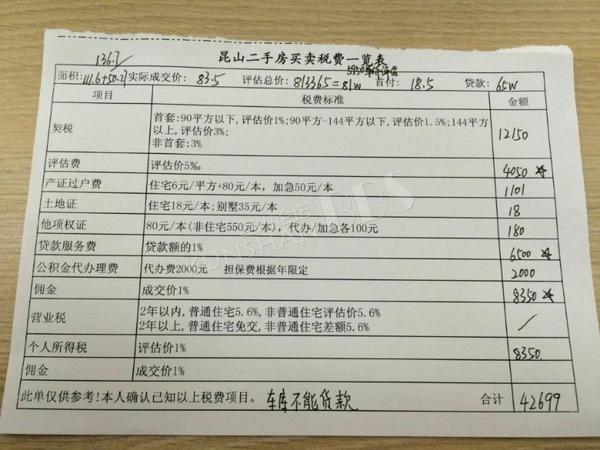 136.7
昆山二手房买卖税费一览表
5950单价评估
面积:111.6+50.21 实际成交价: 83.5 评估总价: 813365=81w 首付: 18.5 贷款: 65W
项目 税费标准 金额
契税 首套:90平方以下,评估价1%;90平方-144平方以下,评估价1.5%;144平方
以上,评估价3%;
非首套:3% 12150
评估费 评估价5‰ 4050
产证过户费 住宅6元/平方+80元/本, 加急50元/本 1101
土地证 住宅18元/本;别墅35元/本 18
他项权证 80元/本(非住宅550元/本), 代办/加急各100元 180
贷款服务费 贷款额的1% 6500
公积金代办理费 代办费2000元 担保费根据年限定 2000
佣金 成交价1% 8350
营业税 2年以内,普通住宅5.6%,非普通住宅评估价5.6%
2年以上,普通住宅免交,非普通住宅差额5.6% /
个人所得税 评估价1% 8350
佣金 成交价1%
此单仅供参考!本人确认已知以上税费项目。 车库不能贷款 合计 42699
KUNSHAN BBS